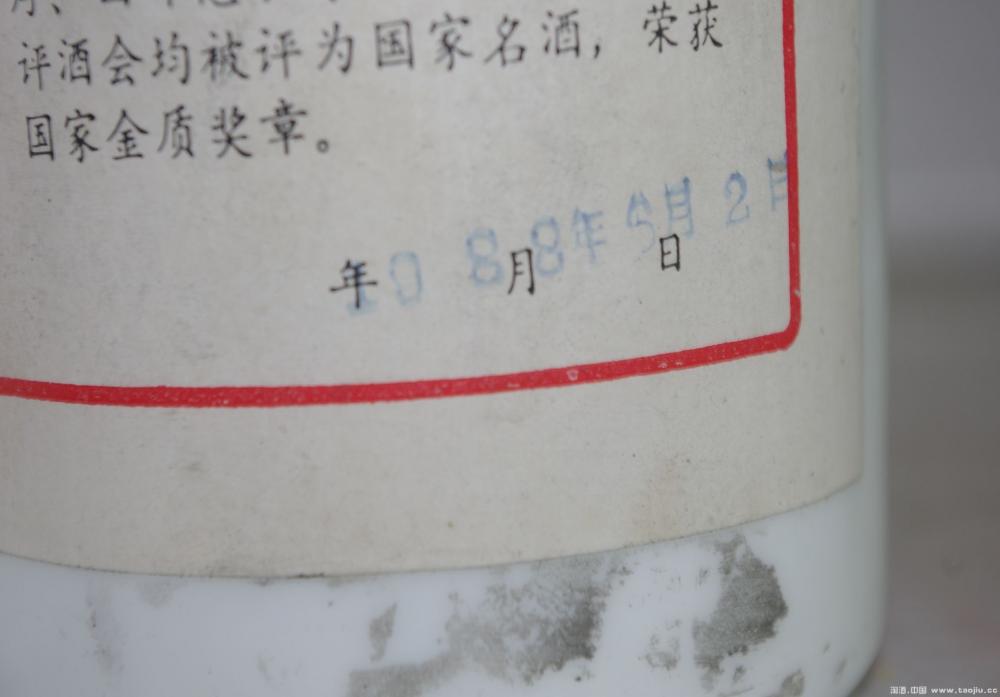 评酒会均被评为国家名酒，荣获
国家金质奖章。
年 月 日
8 8年 5月 2日
淘酒.中国 www.taojiu.cc